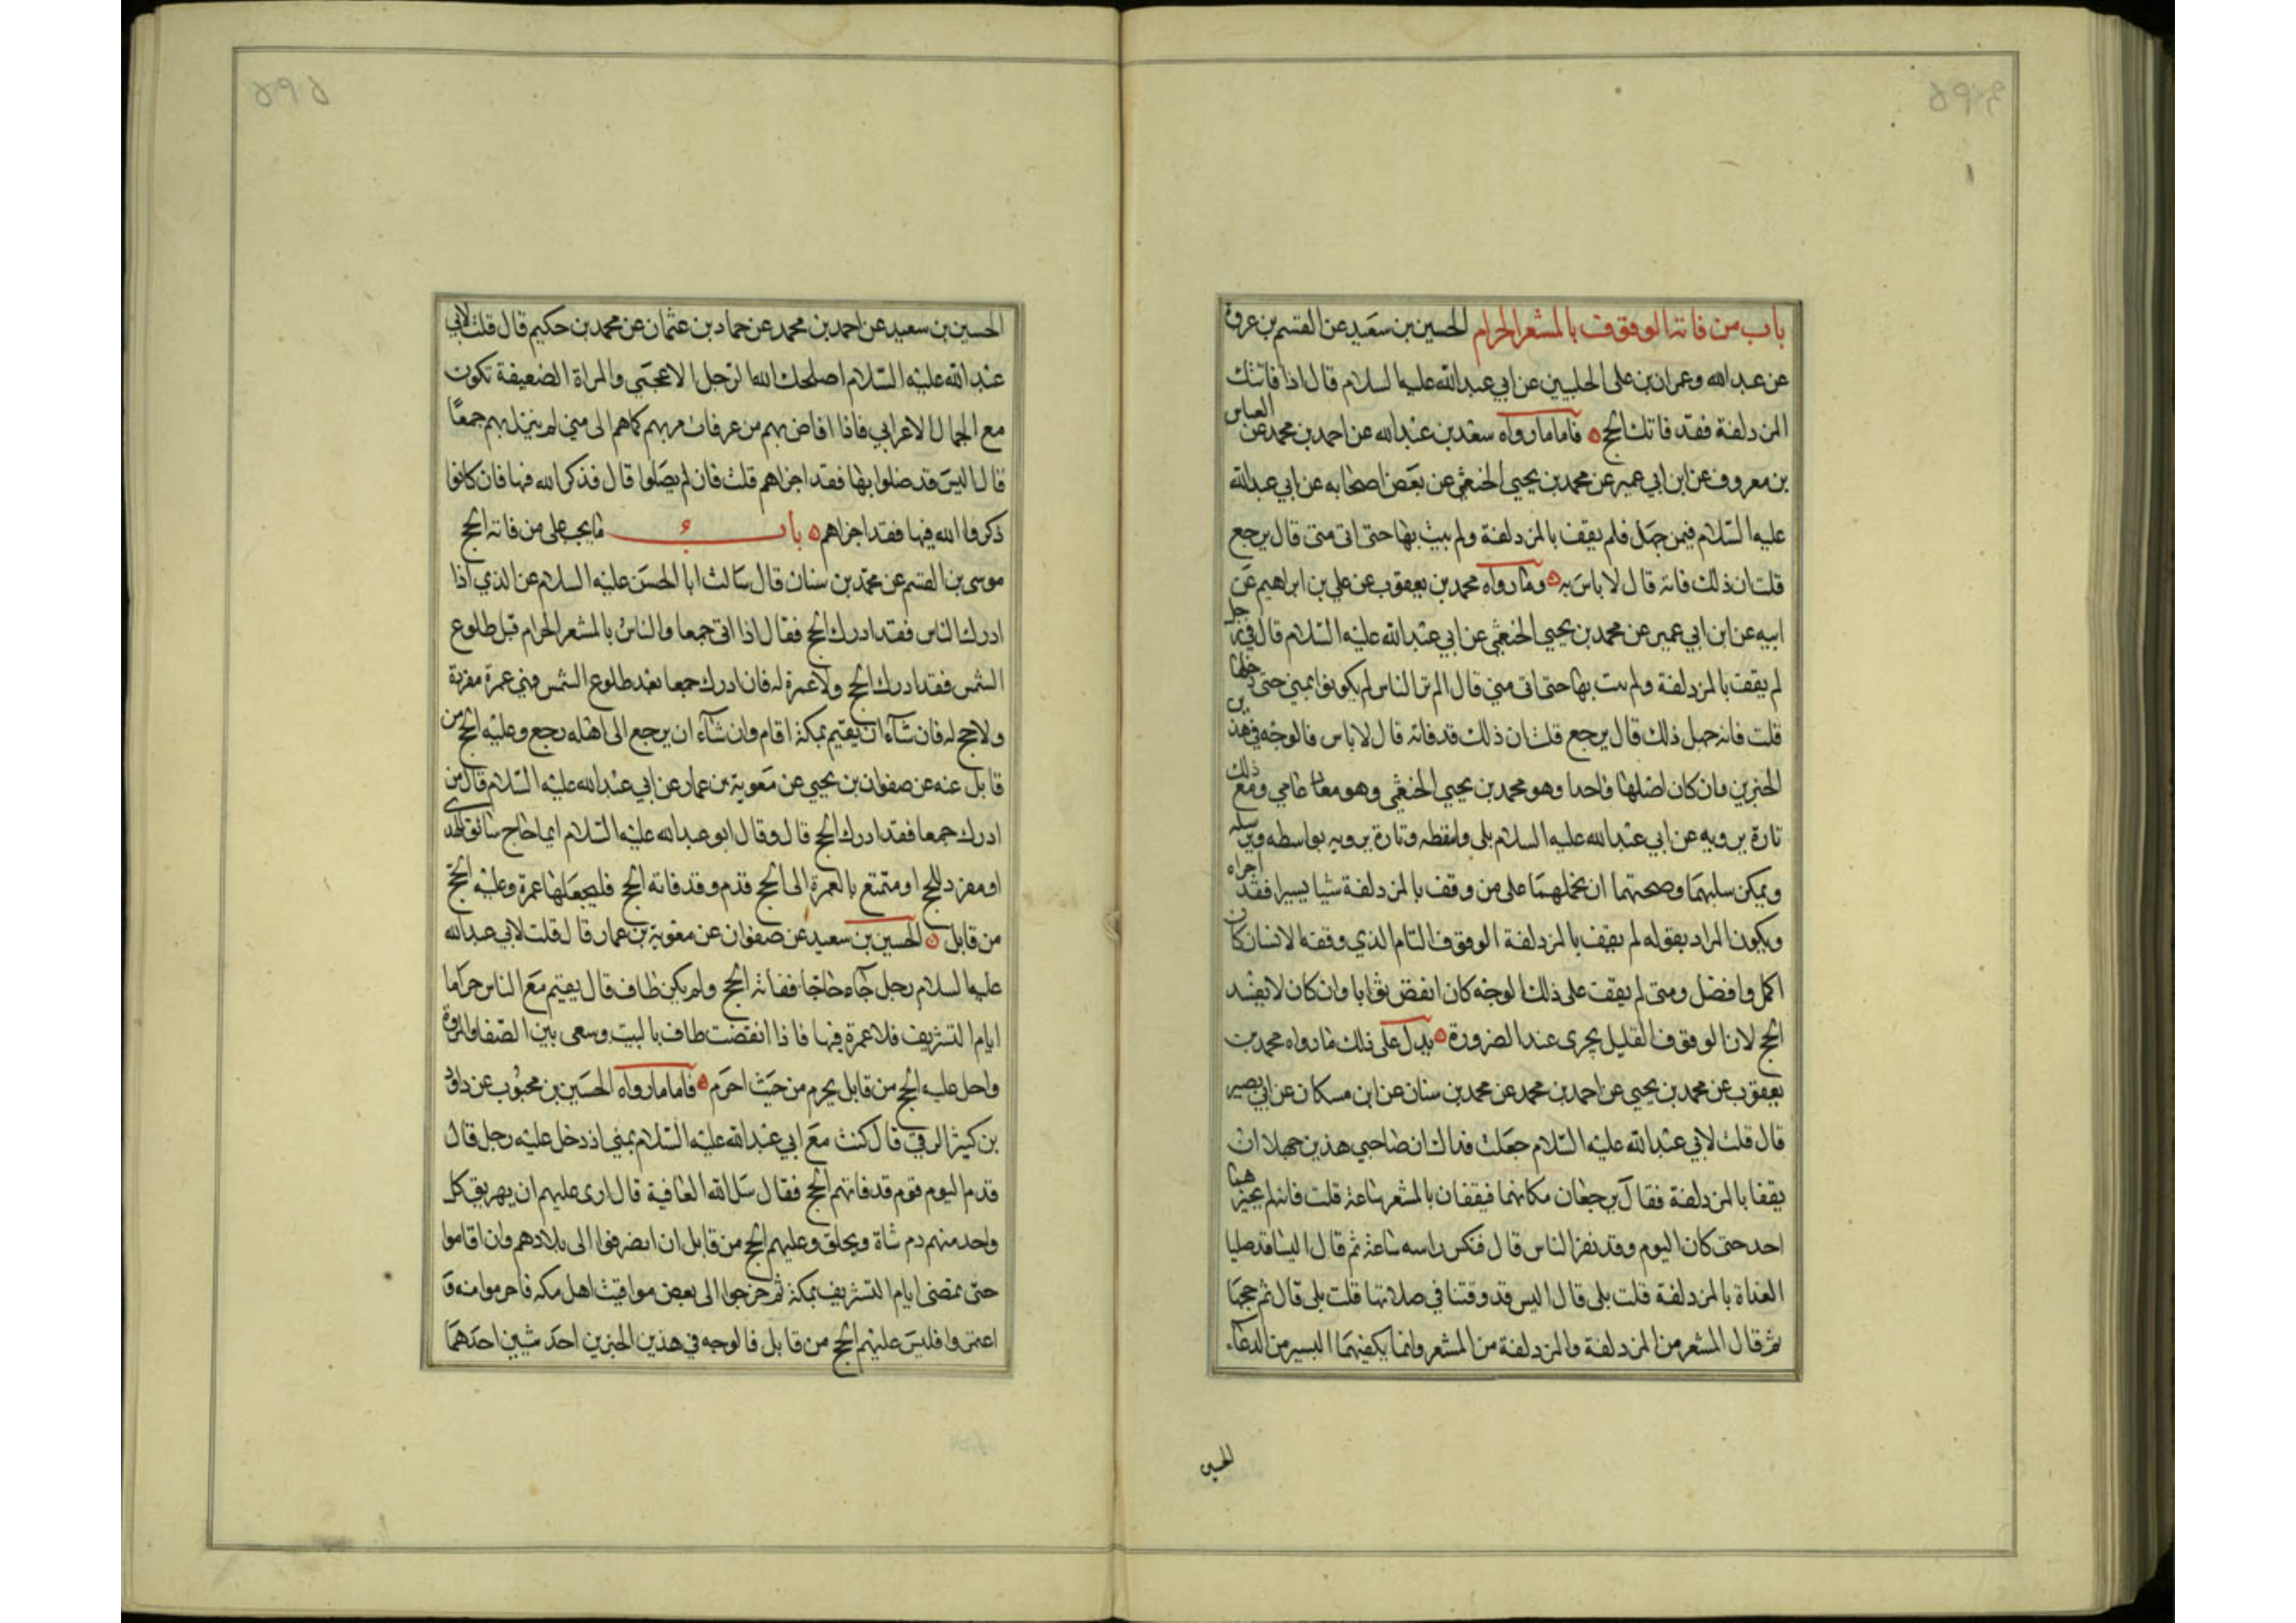 باب من فاته الوقوف بالمشعر الحرام الحسين بن سعيد عن القسم بن عروة
عن عبد الله وعمران بن على الحلبيين عن ابي عبد الله عليه السلام قال اذا فاتتك
المزدلفة فقد فاتك الحج فاما ما رواه سعد بن عبد الله عن احمد بن محمد عن العباس
بن معروف عن ابن ابي عمير عن محمد بن يحيى الخثعمي عن بعض اصحابه عن ابي عبد الله
عليه السلام فيمن جهل فلم يقف بالمزدلفة ولم يبت بها حتى اتى منى قال يرجع
قلت ان ذلك فاته قال لا باس به وما رواه محمد بن يعقوب عن علي بن ابراهيم عن
ابيه عن ابن ابي عمير عن محمد بن يحيى الخثعمي عن ابي عبد الله عليه السلام قال في رجل
لم يقف بالمزدلفة ولم يبت بها حتى اتى منى قال الم تر الناس لم يكونوا بمنى حتى دخلها
قلت فانه جهل ذلك قال يرجع قلت ان ذلك قد فاته قال لا باس فالوجه في هذين
الخبرين وان كان اصلها واحدا وهو محمد بن يحيى الخثعمي وهو عامي ومع ذلك
تارة يرويه عن ابي عبد الله عليه السلام بلى واسطه وتارة يرويه بواسطه ويرسله
ويمكن وصحتهما ان نحملهما على من وقف بالمزدلفة شيا يسيرا فقد اجزاه
ويكون المراد بقوله لم يقف بالمزدلفة الوقوف التام الذي وقفه الانسان كان
اكمل وافضل ومتى لم يقف على ذلك الوجه كان انقص ثوابا وان كان لا يفسد
الحج لان الوقوف القليل يجزى عند الضرورة يدل على ذلك ما رواه محمد بن
يعقوب عن محمد بن يحيى عن احمد بن محمد عن محمد بن سنان عن ابن مسكان عن ابي بصير
قال قلت لابي عبد الله عليه السلام جعلت فداك ان صاحبي هذين جهلا ان
يقفا بالمزدلفة فقال يرجعان مكانهما فيقفان بالمشعر ساعة قلت فانه لم يخبرهما
احد حتى كان اليوم وقد نفر الناس قال فنكس راسه ساعة ثم قال اليسا قد صليا
الغداة بالمزدلفة قلت بلى قال اليس قد وقتنا في صلاتها قلت بلى قال تم حجها
ثم قال المشعر من المزدلفة والمزدلفة من المشعر وانما يكفيهما اليسير من الدعاء
الحسين
الحسين بن سعيد عن احمد بن محمد عن حماد بن عثمان عن محمد بن حكيم قال قلت لابي
عبد الله عليه السلام اصلحك الله الرجل الاعجمي والمراة الضعيفة تكون
مع الجمال الاعرابي فاذا افاض بهم من عرفات مر بهم كما هم الى منى لم ينزل بهم جمعا
قال اليس قد صلوا بها فقد اجزاهم قلت فان لم يصلوا قال فذكر الله فيها فان كانوا
ذكروا الله فيها فقد اجزاهم باب ما يجب على من فاته الحج
موسى بن القسم عن محمد بن سنان قال سالت ابا الحسن عليه السلام عن الذي اذا
ادرك الناس فقد ادرك الحج فقال اذا اتى جمعا والناس بالمشعر الحرام قبل طلوع
الشمس فقد ادرك الحج ولا عمرة له فان ادرك جمعا بعد طلوع الشمس فهي عمرة مفردة
ولا حج له فان شاء ان يقيم بمكة اقام وان شاء ان يرجع الى اهله رجع وعليه الحج من
قابل عنه عن صفوان بن يحيى عن معوية بن عمار عن ابي عبد الله عليه السلام قال من
ادرك جمعا فقد ادرك الحج قال وقال ابو عبد الله عليه السلام ايما حاج سائق للهدى
او مفرد للحج او متمتع بالعمرة الى الحج قدم وقد فاته الحج فليجعلها عمرة وعليه الحج
من قابل الحسين بن سعيد عن صفوان عن معوية بن عمار قال قلت لابي عبد الله
عليه السلام رجل جاء حاجا ففاته الحج ولم يكن طاف قال يقيم مع الناس حراما
ايام التشريف فلا عمرة فيها فاذا انقضت طاف بالبيت وسعى بين الصفا والمروة
واحل عليه الحج من قابل يحرم من حيث احرم فاما ما رواه الحسين بن محبوب عن داود
بن كثير الرقي قال كنت مع ابي عبد الله عليه السلام بمنى اذ دخل عليه رجل قال
قدم اليوم قوم قد فاتهم الحج فقال سل الله العافية قال ارى عليهم ان يهريق كل
واحد منهم دم شاة ويحلق وعليهم الحج من قابل ان انصرفوا الى بلادهم وان اقاموا
حتى تمضى ايام التشريف بمكة ثم خرجوا الى بعض مواقيت اهل مكه فاحرموا منه و
اعتمروا فليس عليهم الحج من قابل فالوجه في هذين الخبرين احد شيين احدهما